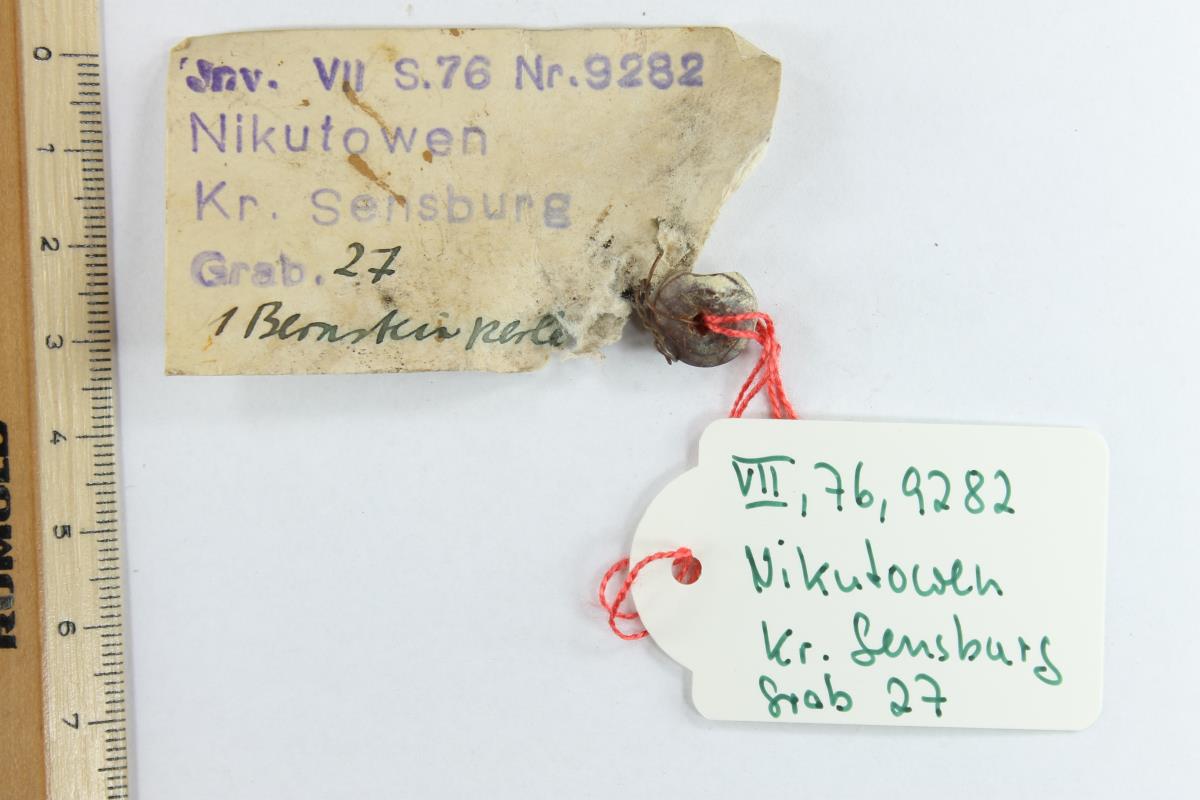 Inv. VII S.76 Nr.9282
Nikutowen
Kr. Sensburg
Grab. 27
1 Bernsteinperle
VII, 76, 9282
Nikutowen
Kr. Sensburg
Grab 27
0
1
2
3
4
5
6
7